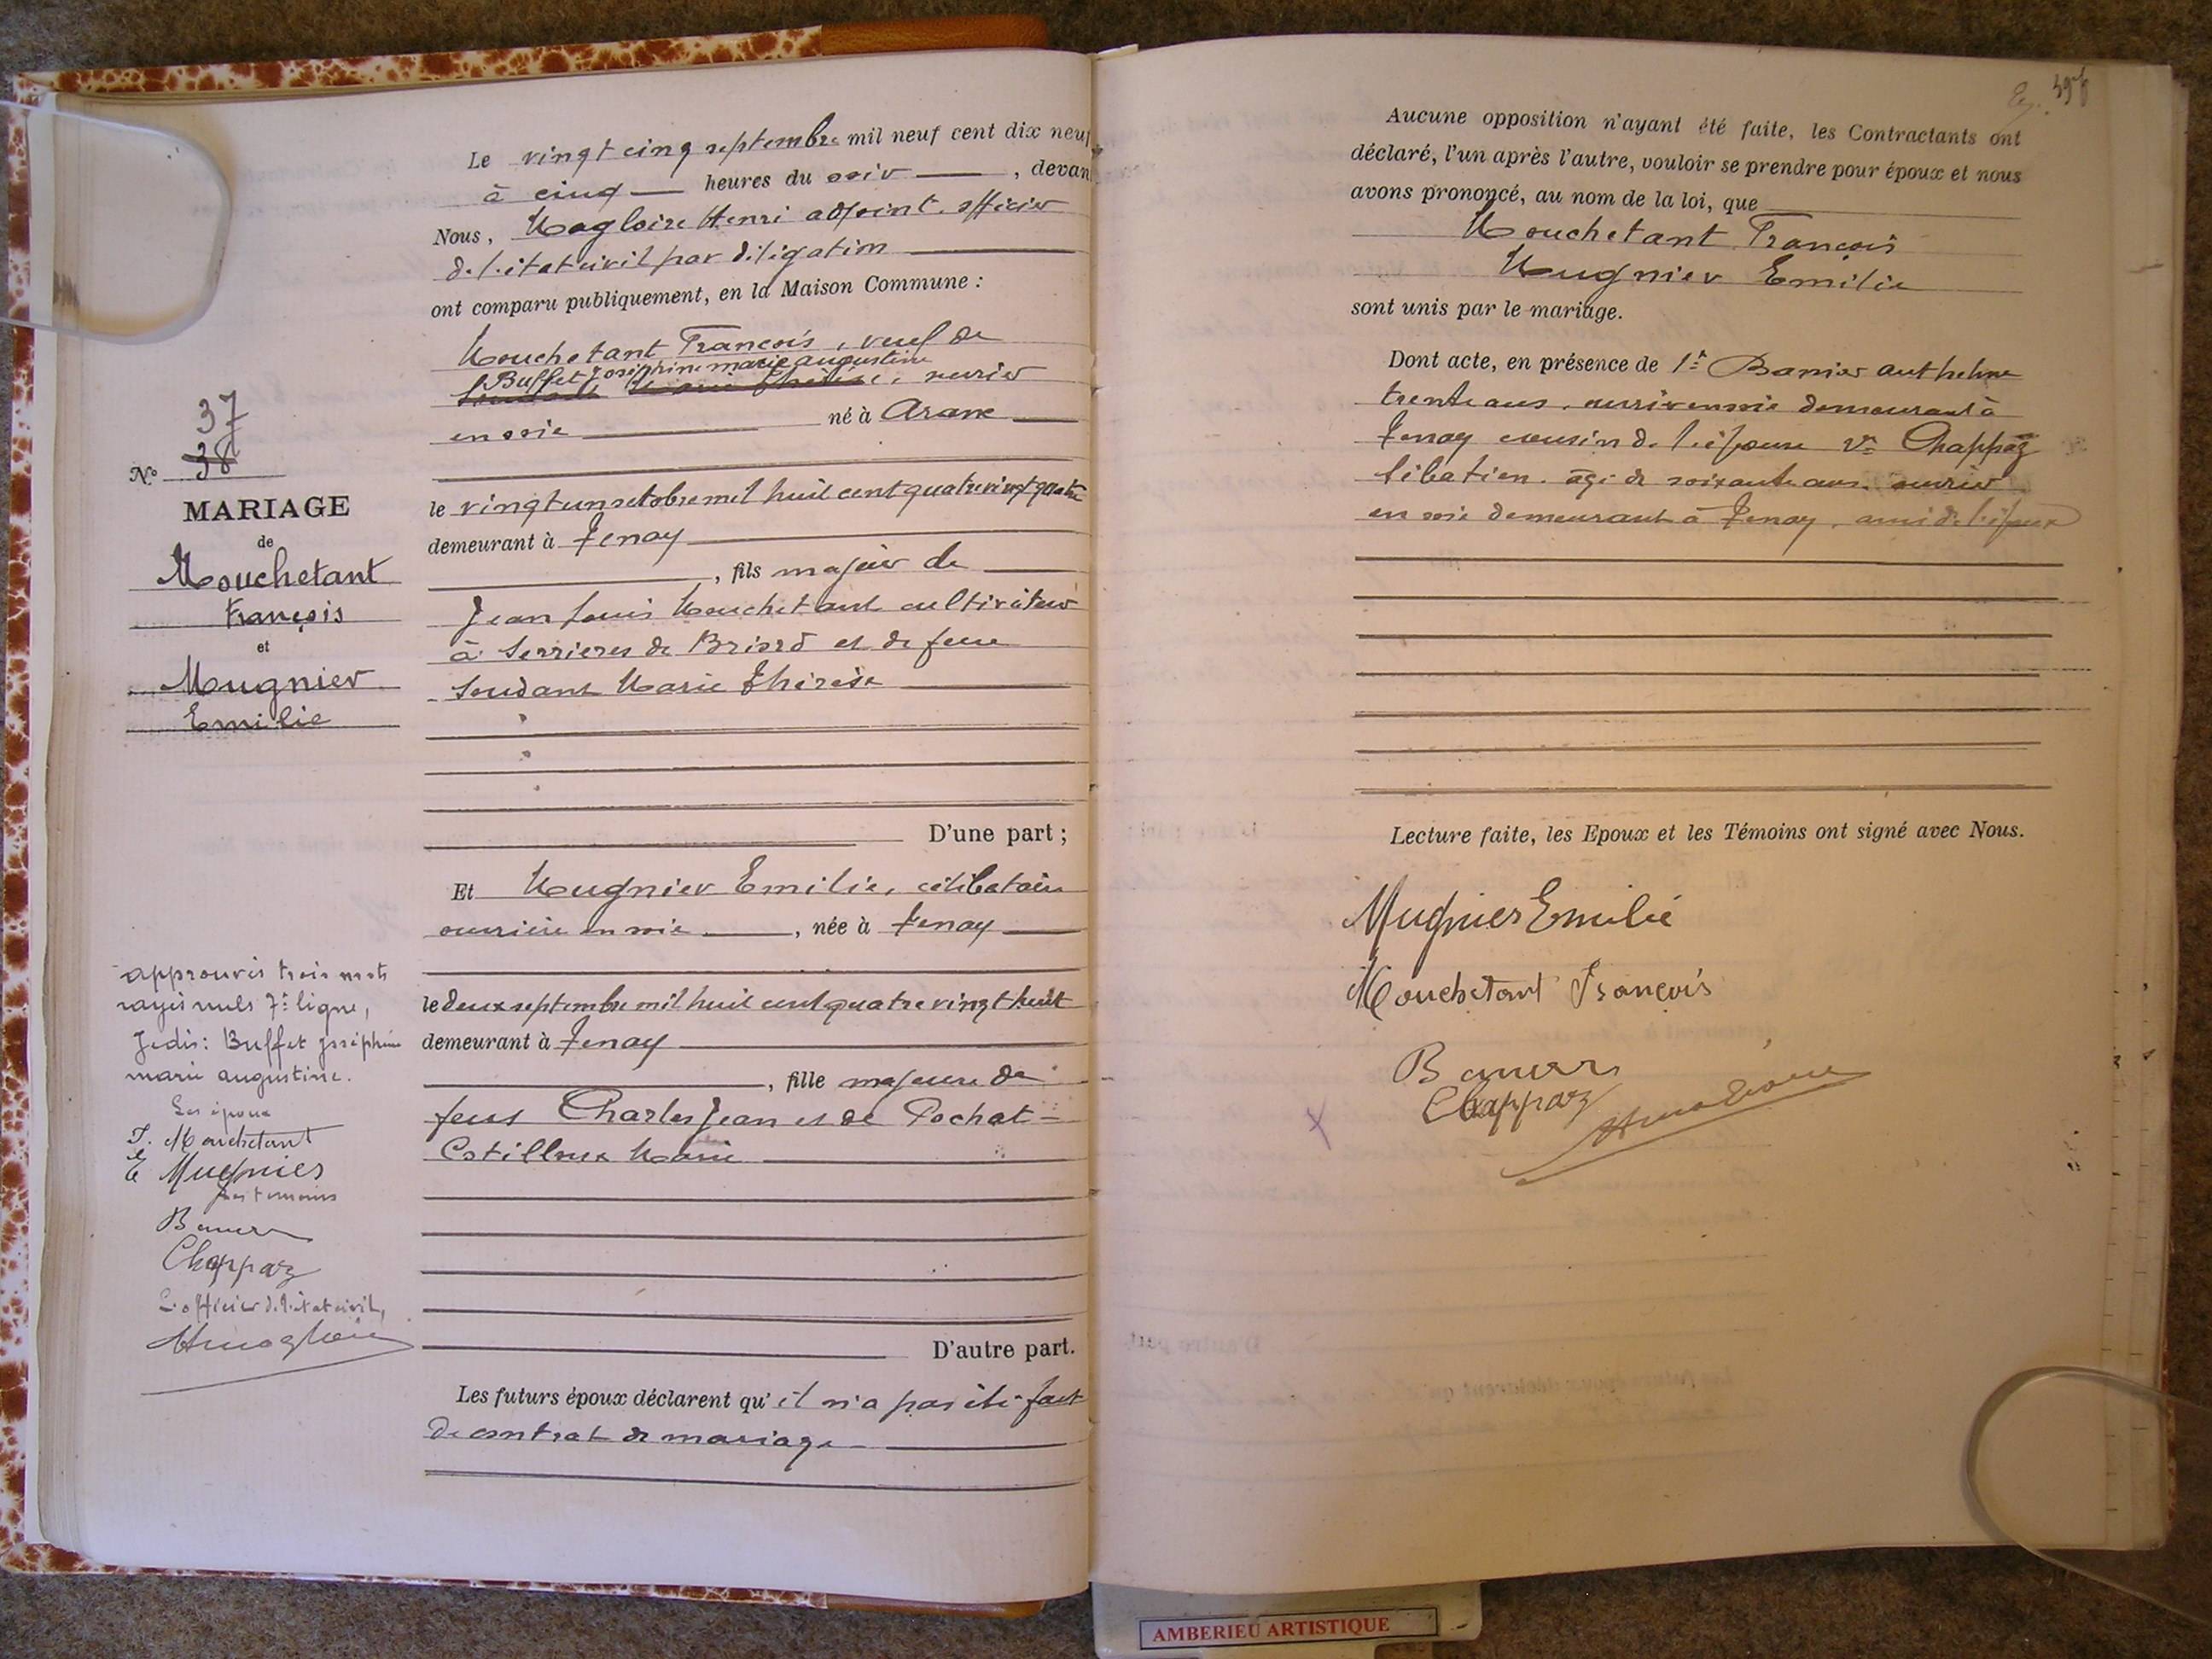 37
38
N°
MARIAGE
de
Mouchetant
François
et
Mugnier
Emilie
approuvés trois mots
rayés nuls 7e ligne,
Je dis: Buffet Joséphine
marie augustine.
Les époux
F. Mouchetant
E Mugnier
Les temoins
Chappaz
L'officier de l'état civil,
Le vingt cinq septembre mil neuf cent dix neuf
à cinq heures du soir, devan
Nous, Magloire Henri adjoint officier
de l'état civil par délégation
ont comparu publiquement, en la Maison Commune :
Mouchetant François, veuf de
Buffet Joséphine marie augustine
Soudant Marie Thérèse, ouvrier
en soie né à Arane
le vingt un octobre mil huit cent quatre vingt quatre
demeurant à Tenay
, fils majeur de
Jean Louis Mouchetant cultivateur
à Serrieres de Briord et de feue
Soudant Marie Thérèse
D'une part ;
Et Mugnier Emilie, célibataire
ouvrière en soie, née à Tenay
le deux septembre mil huit cent quatre vingt huit
demeurant à Tenay
, fille majeure de
feus Charles Jean et de Pochat-
Cotilloux Marie
D'autre part.
Les futurs époux déclarent qu'il n'a pas été fait
de contrat de mariage
Aucune opposition n'ayant été faite, les Contractants ont
déclaré, l'un après l'autre, vouloir se prendre pour époux et nous
avons prononcé, au nom de la loi, que
Mouchetant François
Mugnier Emilie
sont unis par le mariage.
Dont acte, en présence de 1er Banier Anthelme
trente ans, ouvrier en soie demeurant à
Tenay cousin de l'épouse 2e Chappaz
Sébatien. agé de soixante ans. ouvrier
en soie demeurant à Tenay, ami de l'époux
Lecture faite, les Epoux et les Témoins ont signé avec Nous.
Mugnier Emilie
Mouchetant François
Chappaz
AMBERIEU ARTISTIQUE